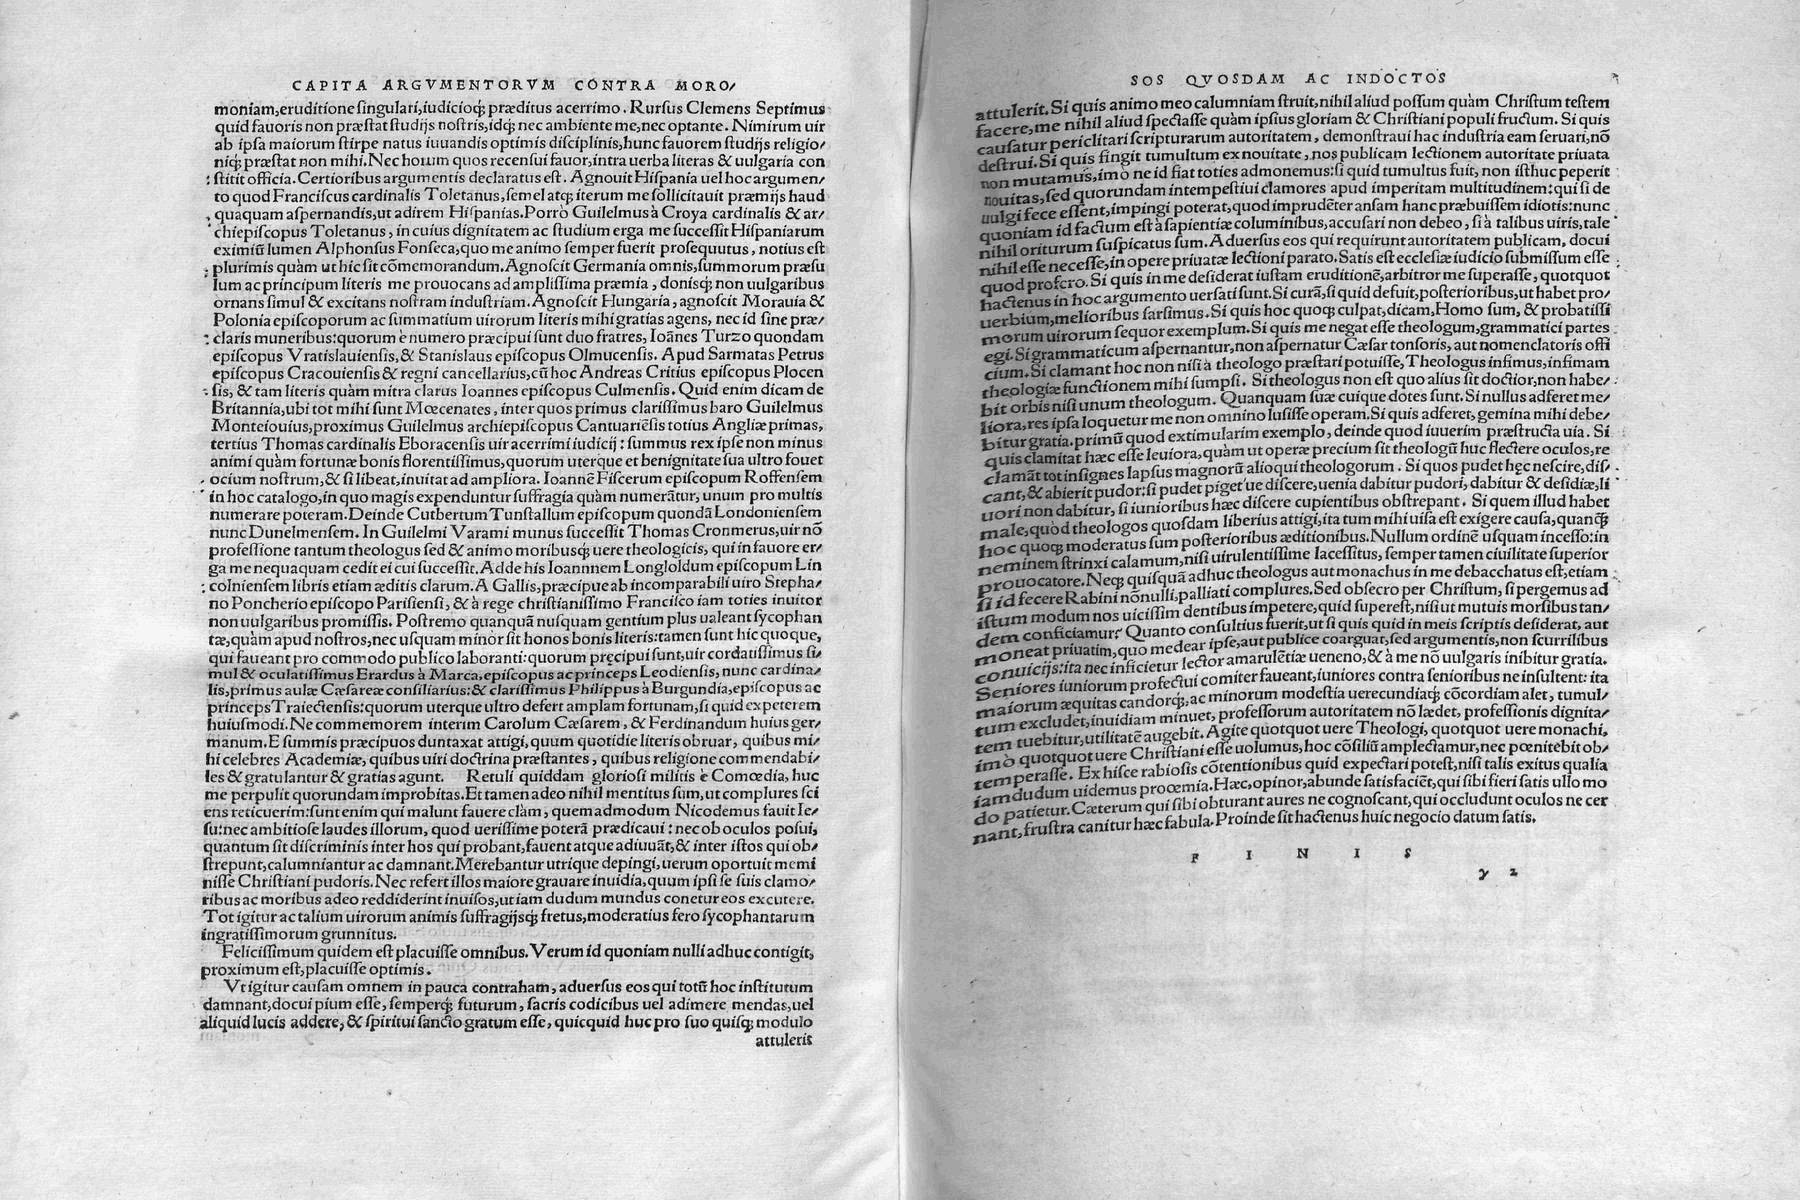 CAPITA ARGVMENTORVM CONTRA MORO/
moniam,eruditione singulari,iudicioq; præditus acerrimo. Rursus Clemens Septimus
quid fauoris non præstat studijs nostris,idq; nec ambiente me,nec optante. Nimirum uir
ab ipsa maiorum stirpe natus iuuandis optimis disciplinis,hunc fauorem studijs religio/
niq; præstat non mihi.Nec horum quos recensui fauor,intra uerba literas & uulgaria con
stitit officia. Certioribus argumentis declaratus est. Agnouit Hispania uel hoc argumen/
to quod Franciscus cardinalis Toletanus,semel atq; iterum me sollicitauit præmijs haud
quaquam aspernandis,ut adirem Hispanias.Porrò Guilelmus à Croya cardinalis & ar/
chiepiscopus Toletanus, in cuius dignitatem ac studium erga me successit Hispaniarum
eximiũ lumen Alphonsus Fonseca,quo me animo semper fuerit prosequutus, notius est
plurimis quàm ut hic sit cõmemorandum.Agnoscit Germania omnis,summorum præsu
lum ac principum literis me prouocans ad amplissima præmia, donisq; non uulgaribus
ornans simul & excitans nostram industriam. Agnoscit Hungaria, agnoscit Morauia &
Polonia episcoporum ac summatium uirorum literis mihi gratias agens, nec id sine præ/
claris muneribus:quorum è numero præcipui sunt duo fratres, Ioãnes Turzo quondam
episcopus Vratislauiensis,& Stanislaus episcopus Olmucensis. Apud Sarmatas Petrus
episcopus Cracouiensis & regni cancellarius,cũ hoc Andreas Critius episcopus Plocen
sis, & tam literis quàm mitra clarus Ioannes episcopus Culmensis. Quid enim dicam de
Britannia,ubi tot mihi sunt Mœcenates, inter quos primus clarissimus baro Guilelmus
Monteiouius,proximus Guilelmus archiepiscopus Cantuariẽsis totius Angliæ primas,
tertius Thomas cardinalis Eboracensis uir acerrimi iudicij: summus rex ipse non minus
animi quàm fortunæ bonis florentissimus,quorum uterque et benignitate sua ultro fouet
ocium nostrum,& si libeat,inuitat ad ampliora. Ioannẽ Fiscerum episcopum Roffensem
in hoc catalogo,in quo magis expenduntur suffragia quàm numerãtur, unum pro multis
numerare poteram.Deinde Cutbertum Tunstallum episcopum quondã Londoniensem
nunc Dunelmensem. In Guilelmi Varami munus successit Thomas Cronmerus,uir nõ
professione tantum theologus sed & animo moribusq; uere theologicis, qui in fauore er/
ga me nequaquam cedit ei cui successit.Adde his Ioannnem Longloldum episcopum Lin
colniensem libris etiam æditis clarum.A Gallis,præcipue ab incomparabili uiro Stepha/
no Poncherio episcopo Parisiensi, & à rege christianissimo Francisco iam toties inuitor
non uulgaribus promissis. Postremo quanquã nusquam gentium plus ualeant sycophan
tæ,quàm apud nostros,nec usquam minor sit honos bonis literis:tamen sunt hic quoque,
qui faueant pro commodo publico laboranti:quorum pręcipui sunt,uir cordatissimus si/
mul & oculatissimus Erardus à Marca,episcopus ac princeps Leodiensis, nunc cardina/
lis,primus aulæ Cæsareæ consiliarius:& clarissimus Philippus à Burgundia,episcopus ac
princeps Traiectensis:quorum uterque ultro defert amplam fortunam,si quid expeterem
huiusmodi. Ne commemorem interim Carolum Cæsarem, & Ferdinandum huius ger/
manum. E summis præcipuos duntaxat attigi,quum quotidie literis obruar, quibus mi/
hi celebres Academiæ, quibus uiri doctrina præstantes, quibus religione commendabi/
les & gratulantur & gratias agunt. Retuli quiddam gloriosi militis è Comœdia, huc
me perpulit quorundam improbitas.Et tamen adeo nihil mentitus sum,ut complures sci
ens reticuerim:sunt enim qui malunt fauere clàm, quemadmodum Nicodemus fauit Ie/
su:nec ambitiose laudes illorum, quod uerissime poterã prædicaui: nec ob oculos posui,
quantum sit discriminis inter hos qui probant,fauent atque adiuuãt,& inter istos qui ob/
strepunt,calumniantur ac damnant.Merebantur utrique depingi,uerum oportuit memi
nisse Christiani pudoris. Nec refert illos maiore grauare inuidia,quum ipsi se suis clamo/
ribus ac moribus adeo reddiderint inuisos,ut iam dudum mundus conetur eos excutere.
Tot igitur ac talium uirorum animis suffragijsq; fretus,moderatius fero sycophantarum
ingratissimorum grunnitus.
Felicissimum quidem est placuisse omnibus. Verum id quoniam nulli adhuc contigit,
proximum est,placuisse optimis.
Vt igitur causam omnem in pauca contraham, aduersus eos qui totũ hoc institutum
damnant,docui pium esse, semperq; futurum, sacris codicibus uel adimere mendas,uel
aliquid lucis addere, & spiritui sancto gratum esse, quicquid huc pro suo quisq; modulo
attuleris
SOS QVOSDAM AC INDOCTOS
attulerit. Si quis animo meo calumniam struit,nihil aliud possum quàm Christum testem
facere,me nihil aliud spectasse quàm ipsius gloriam & Christiani populi fructum. Si quis
causatur periclitari scripturarum autoritatem, demonstraui hac industria eam seruari,nõ
destrui. Si quis fingit tumultum ex nouitate, nos publicam lectionem autoritate priuata
non mutamus, imò ne id fiat toties admonemus:si quid tumultus fuit, non isthuc peperit
nouitas,sed quorundam intempestiui clamores apud imperitam multitudinem:qui si de
uulgi fece essent,impingi poterat,quod imprudẽter ansam hanc præbuissem idiotis:nunc
quoniam id factum est à sapientiæ columinibus,accusari non debeo, si à talibus uiris,tale
nihil oriturum suspicatus sum. Aduersus eos qui requirunt autoritatem publicam, docui
nihil esse necesse,in opere priuatæ lectioni parato. Satis est ecclesiæ iudicio submissum esse
quod profero. Si quis in me desiderat iustam eruditionẽ,arbitror me superasse, quotquot
hactenus in hoc argumento uersati sunt.Si curã,si quid defuit,posterioribus,ut habet pro/
uerbium,melioribus sarsimus. Si quis hoc quoq; culpat,dicam,Homo sum, & probatissi
morum uirorum sequor exemplum. Si quis me negat esse theologum,grammatici partes
egi. Si grammaticum aspernantur,non aspernatur Cæsar tonsoris, aut nomenclatoris offi
cium. Si clamant hoc non nisi à theologo præstari potuisse, Theologus infimus,infimam
theologiæ functionem mihi sumpsi. Si theologus non est quo alius sit doctior,non habe/
bit orbis nisi unum theologum. Quanquam suæ cuique dotes sunt.Si nullus adferet me/
liora,res ipsa loquetur me non omnino lusisse operam.Si quis adferet, gemina mihi debe/
bitur gratia. primũ quod extimularim exemplo, deinde quod iuuerim præstructa uia. Si
quis clamitat hæc esse leuiora, quàm ut operæ precium sit theologũ huc flectere oculos,re
clamãt tot insignes lapsus magnorũ alioqui theologorum. Si quos pudet hęc nescire,dis/
cant,& abierit pudor:si pudet piget'ue discere,uenia dabitur pudori, dabitur & desidiæ,li
uori non dabitur, si iunioribus hæc discere cupientibus obstrepant. Si quem illud habet
male,quòd theologos quosdam liberius attigi,ita tum mihi uisa est exigere causa, quanq;
hoc quoq; moderatus sum posterioribus æditionibus. Nullum ordinẽ usquam incesso:in
neminem strinxi calamum,nisi uirulentissime lacessitus, semper tamen ciuilitate superior
prouocatore. Neq; quisquã adhuc theologus aut monachus in me debacchatus est,etiam
si id fecere Rabini nõnulli,palliati complures. Sed obsecro per Christum, si pergemus ad
istum modum nos uicissim dentibus impetere,quid superest,nisi ut mutuis morsibus tan/
dem conficiamur? Quanto consultius fuerit,ut si quis quid in meis scriptis desiderat, aut
moneat priuatim,quo medear ipse,aut publice coarguat,sed argumentis,non scurrilibus
conuicijs:ita nec inficietur lector amarulẽtiæ ueneno,& à me nõ uulgaris inibitur gratia.
Seniores iuniorum profectui comiter faueant,iuniores contra senioribus ne insultent: ita
maiorum æquitas candorq;,ac minorum modestia uerecundiaq; cõcordiam alet, tumul/
tum excludet,inuidiam minuet, professorum autoritatem nõ lædet, professionis dignita/
tem tuebitur,utilitatẽ augebit. Agite quotquot uere Theologi, quotquot uere monachi,
imò quotquot uere Christiani esse uolumus,hoc cõsiliũ amplectamur,nec pœnitebit ob/
temperasse. Ex hisce rabiosis cõtentionibus quid expectari potest,nisi talis exitus qualia
iamdudum uidemus proœmia. Hæc, opinor,abunde satisfaciẽt,qui sibi fieri satis ullo mo
do patietur. Cæterum qui sibi obturant aures ne cognoscant,qui occludunt oculos ne cer
nant,frustra canitur hæc fabula.Proinde sit hactenus huic negocio datum satis.
F I N I S
γ 2